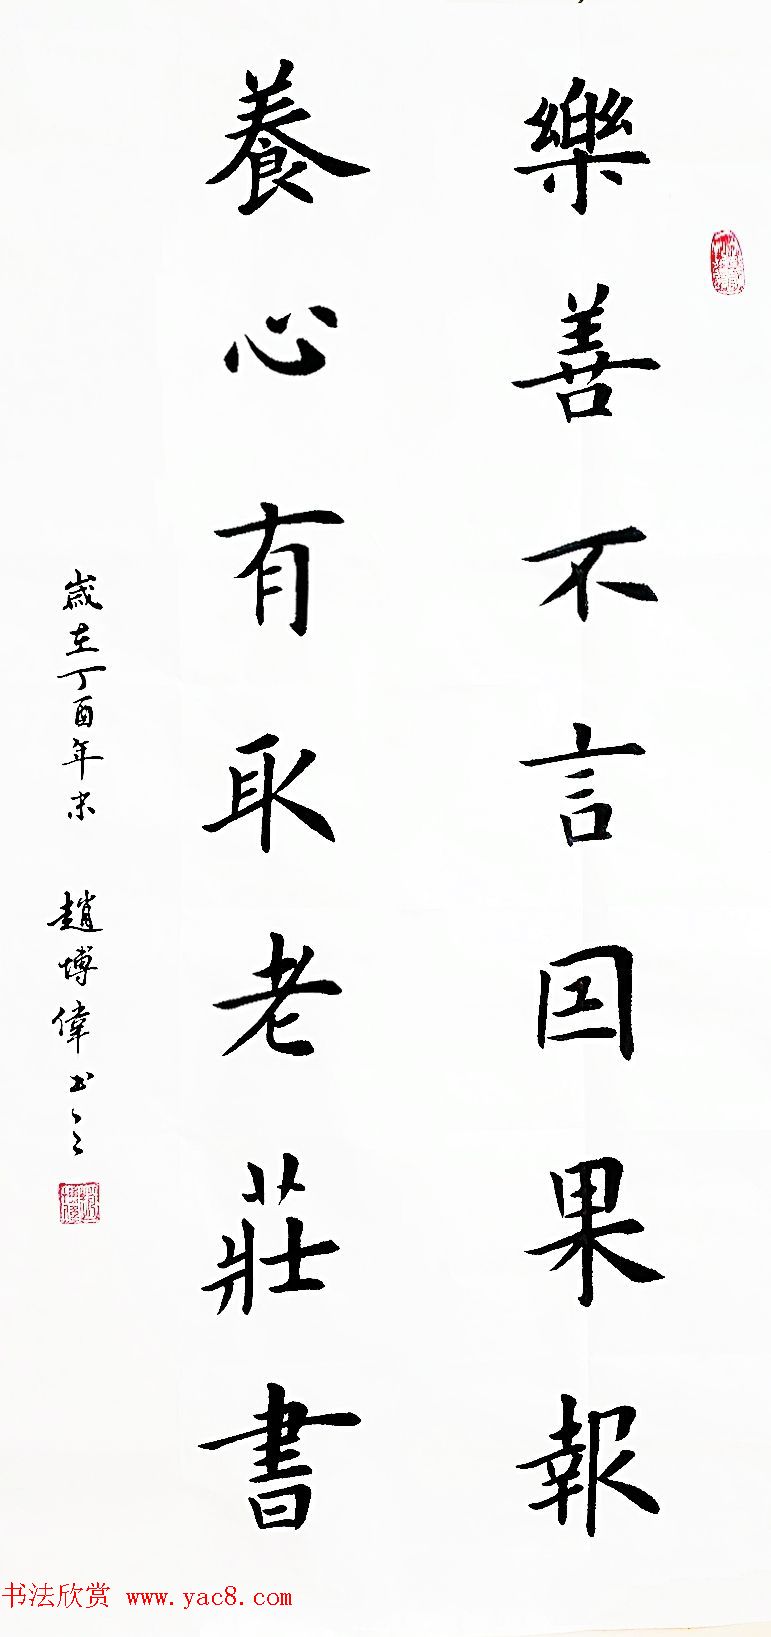 樂善不言因果報
養心有取老莊書
歲在丁酉年末 趙博偉書之
书法欣赏 www.yac8.com